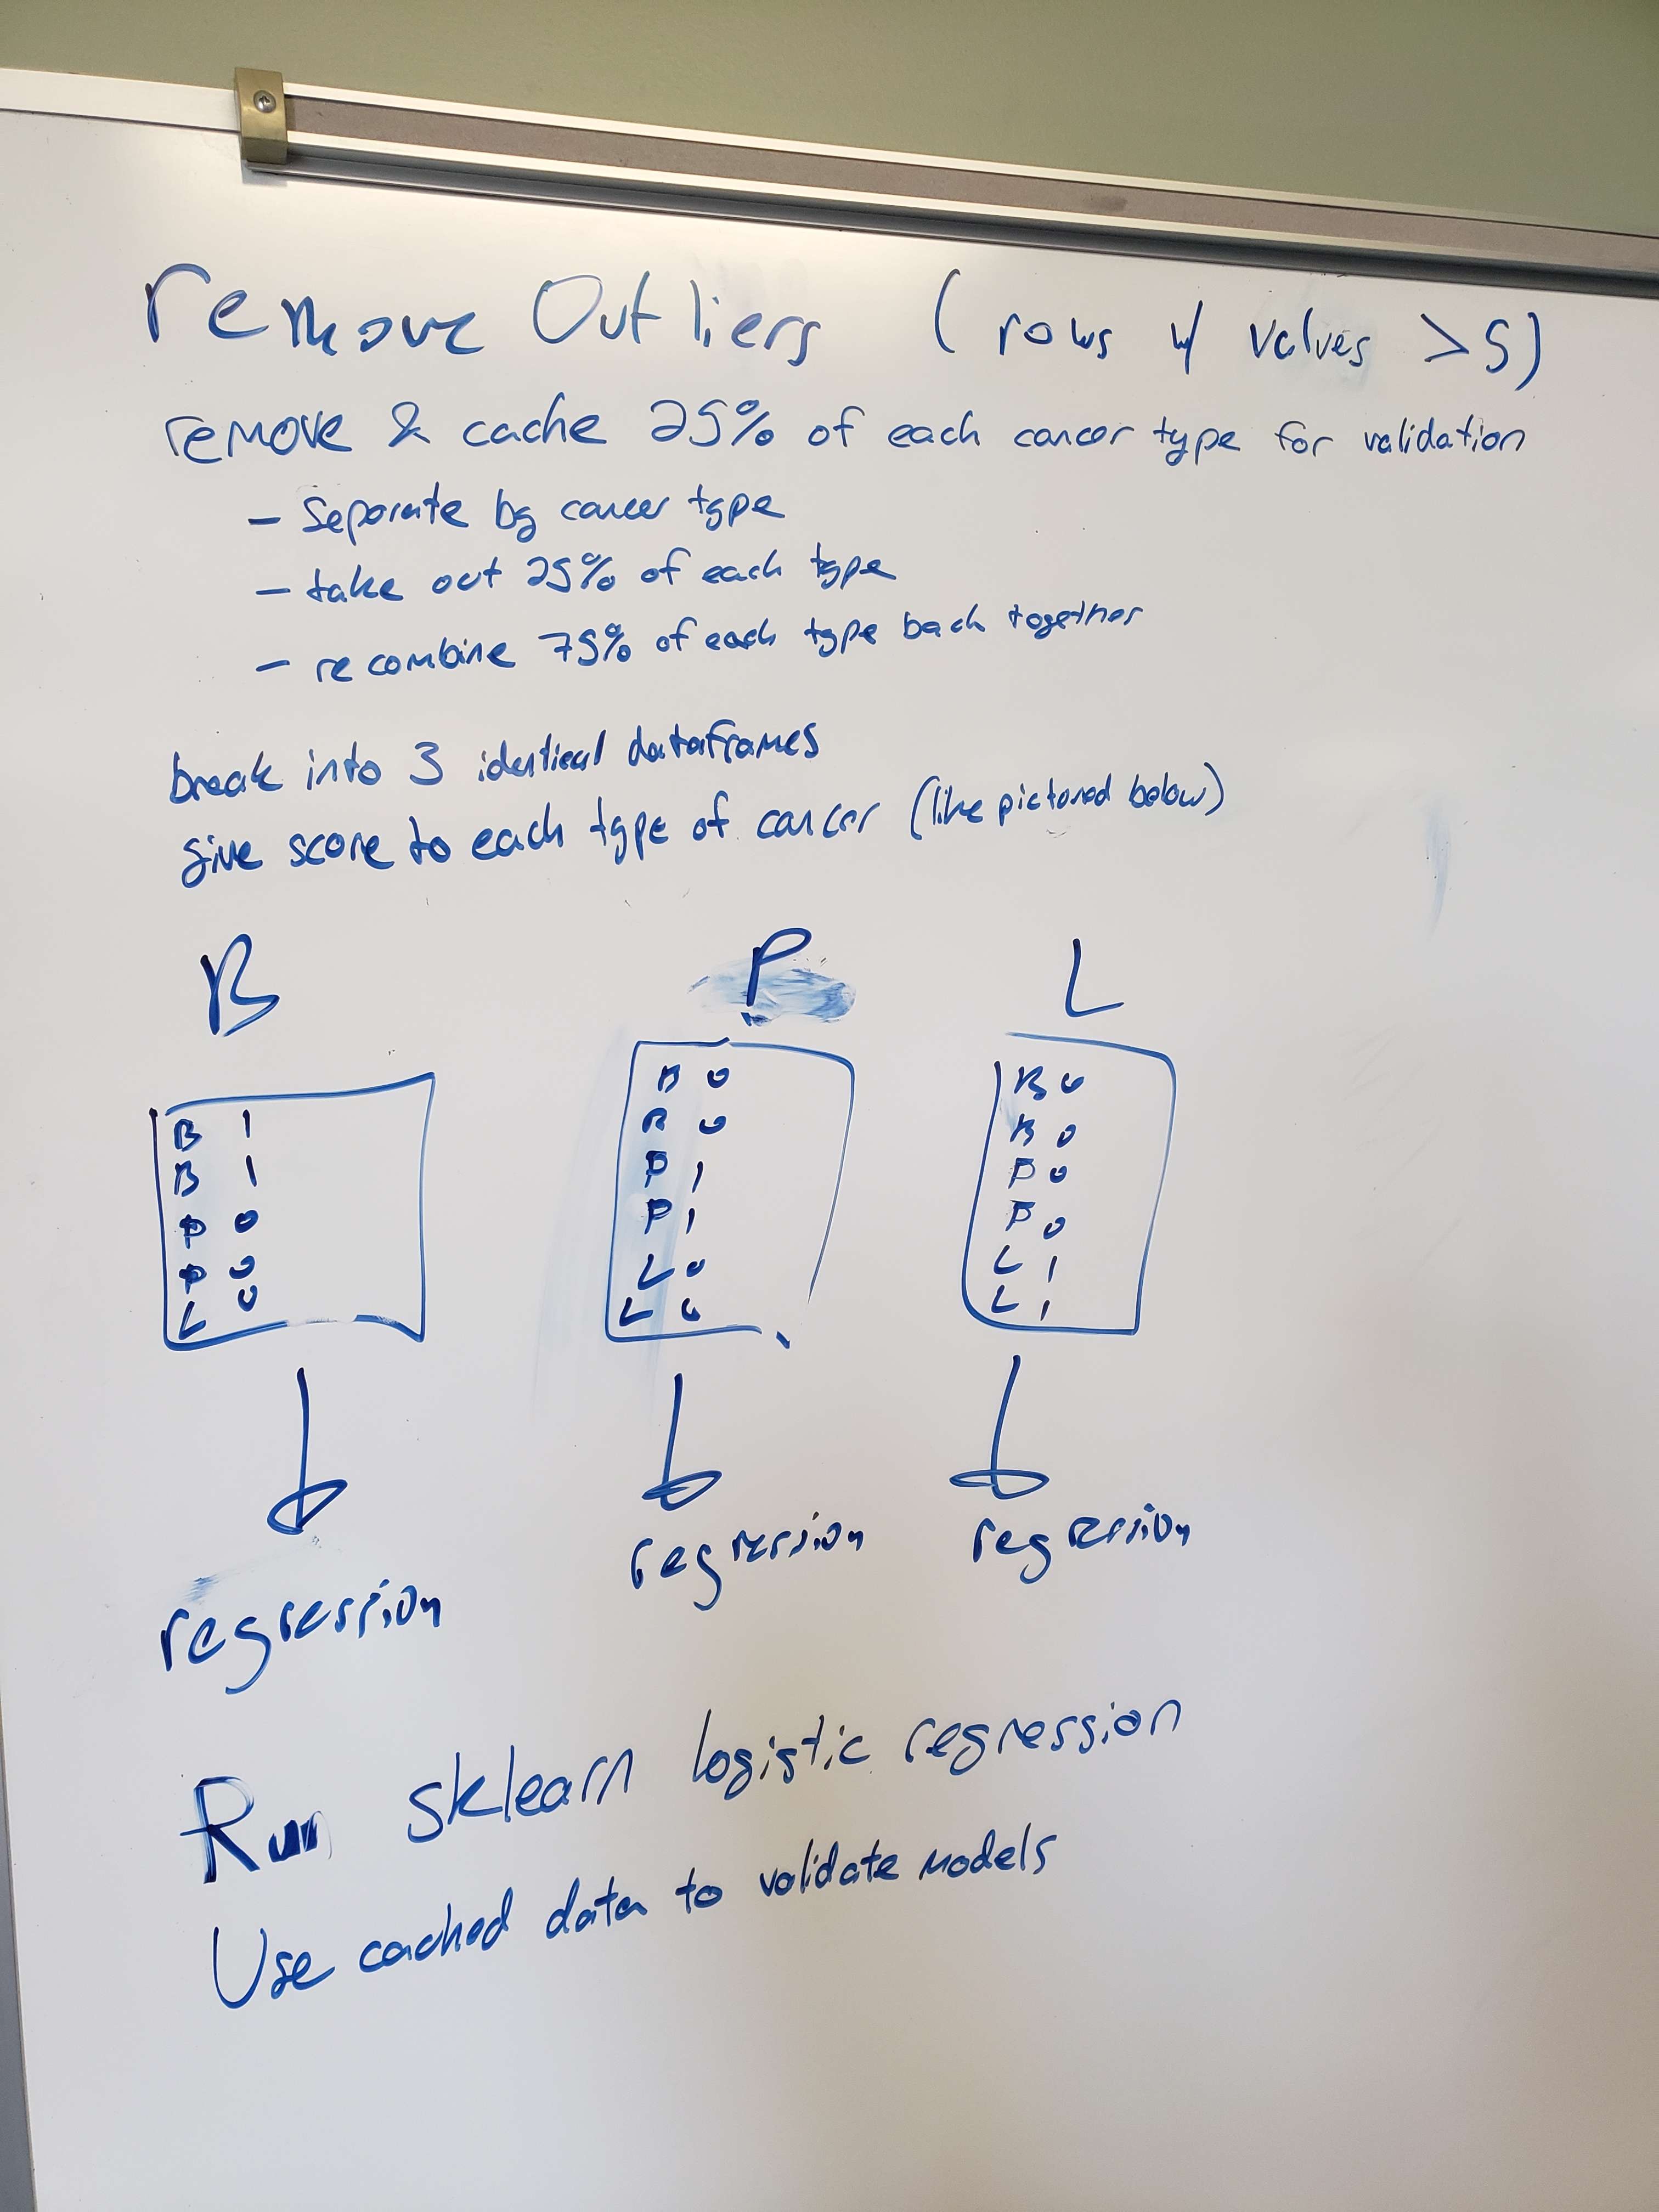 remove Outliers (rows w/ values >5)
remove & cache 25% of each cancer type for validation
- Separate by cancer type
- take out 25% of each type
- recombine 75% of each type back together
break into 3 identical dataframes
give score to each type of cancer (like pictured below)
B P L
B 1
B 1
P 0
P 0
L 0
B 0
B 0
P 1
P 1
L 0
L 0
B 0
B 0
P 0
P 0
L 1
L 1
regression
regression
regression
Run sklearn logistic regression
Use cached data to validate models